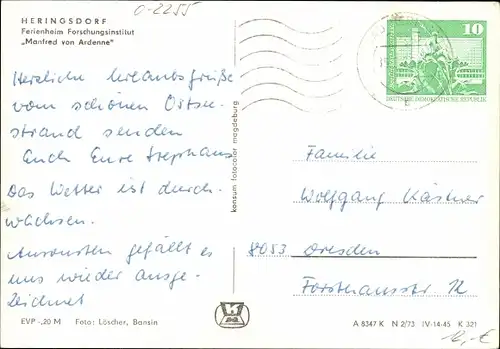 O-2255
HERINGSDORF
Ferienheim Forschungsinstitut
„Manfred von Ardenne"
10
DEUTSCHE DEMOKRATISCHE REPUBLIK
Herzliche Urlaubsgrüße
vom schönen Ostsee-
strand senden
Euch Eure Stephans
Das Wetter ist durch-
wachsen.
Ansonsten gefällt es
uns wieder ausge-
zeichnet
konsum fotocolor magdeburg
Familie
Wolfgang Kästner
8053 Dresden
Forsthausstr. 12
EVP -,20 M Foto: Löscher, Bansin
A 8347 K N 2/73 IV-14-45 K 321